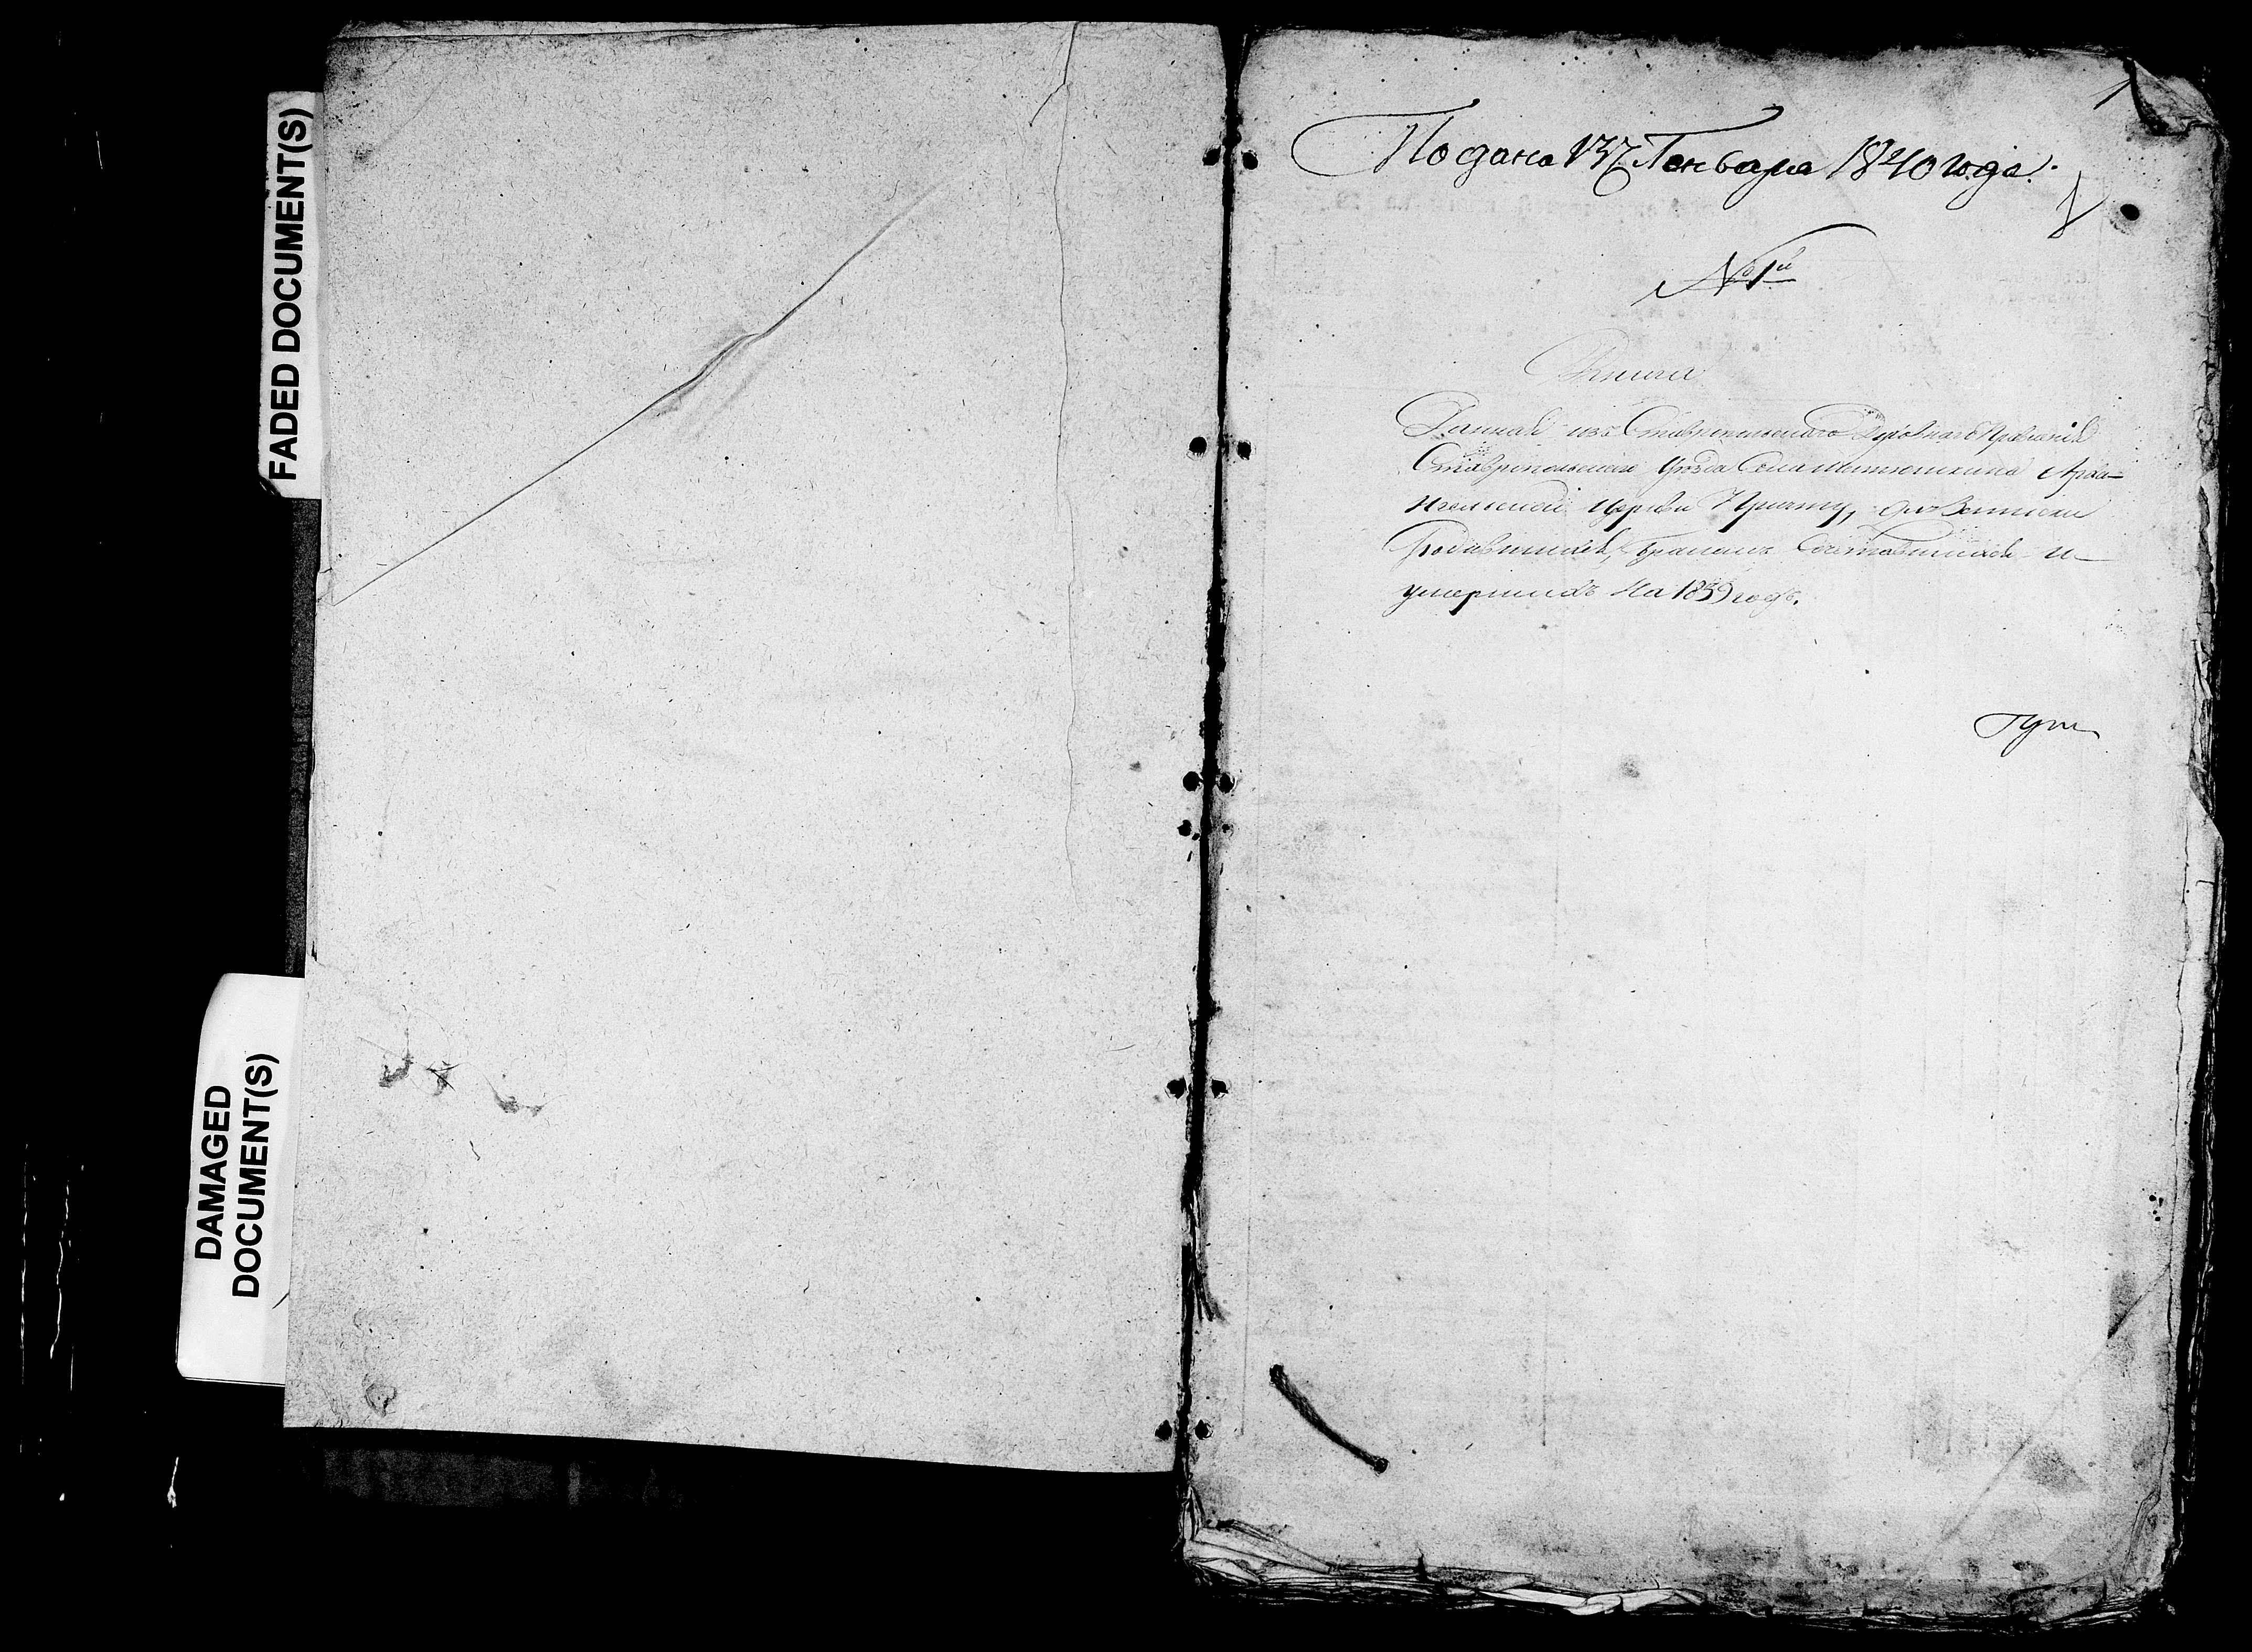 FADED DOCUMENT(S)
DAMAGED
DOCUMENT(S)
1
Подана Генваря 1840 года.
№ 1й
Книга
Данная изъ Ставропольскаго Духовнаго Правленія
Ставропольскаго уѣзда Села Арха-
нгельской Церкви Причту, для Записки
Родившихся, бракомъ Сочетавшихся и
умершихъ На 1839 годъ.